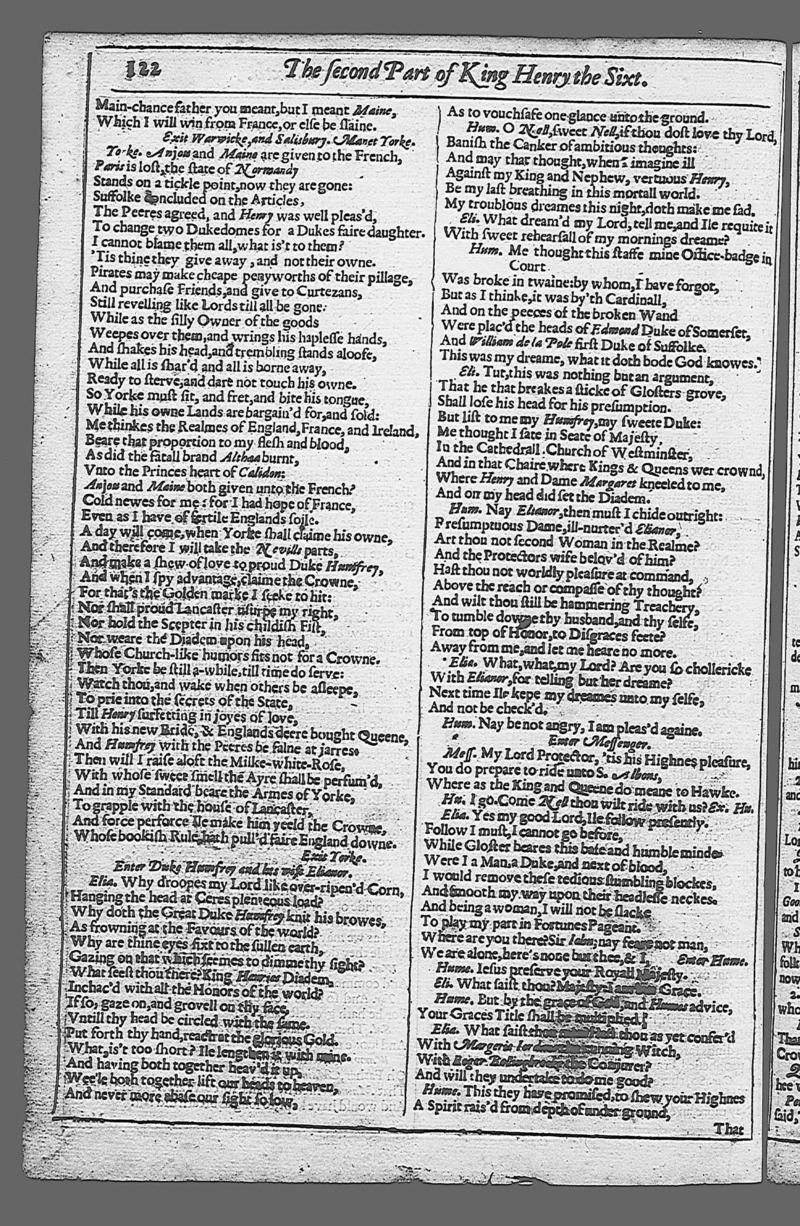 122
The ſecond Part of King Henry the Sixt.
Main-chance father you meant, but I meant Maine,
Which I will win from France, or elſe be ſlaine.
Exit Warwicke, and Salisbury. Manet Yorke.
Yorke. Anjou and Maine are given to the French,
Paris is loſt, the ſtate of Normandy
Stands on a tickle point, now they are gone:
Suffolke concluded on the Articles,
The Peeres agreed, and Henry was well pleas'd,
To change two Dukedomes for a Dukes faire daughter.
I cannot blame them all, what is't to them?
'Tis thine they give away, and not their owne.
Pirates may make cheape penyworths of their pillage,
And purchaſe Friends, and give to Curtezans,
Still revelling like Lords till all be gone:
While as the ſilly Owner of the goods
Weepes over them, and wrings his hapleſſe hands,
And ſhakes his head, and trembling ſtands aloofe,
While all is ſhar'd and all is borne away,
Ready to ſterve, and dare not touch his owne.
So Yorke muſt ſit, and fret, and bite his tongue,
While his owne Lands are bargain'd for, and ſold:
Me thinkes the Realmes of England, France, and Ireland,
Beare that proportion to my fleſh and blood,
As did the fatall brand Althaa burnt,
Vnto the Princes heart of Calidon:
Anjou and Maine both given unto the French?
Cold newes for me: for I had hope of France,
Even as I have of fertile Englands ſoile.
A day will come, when Yorke ſhall claime his owne,
And therefore I will take the Nevills parts,
And make a ſhew of love to proud Duke Humfrey,
And when I ſpy advantage, claime the Crowne,
For that's the Golden marke I ſeeke to hit:
Nor ſhall proud Lancaſter uſurpe my right,
Nor hold the Scepter in his childiſh Fiſt,
Nor weare the Diadem upon his head,
Whoſe Church-like humors fits not for a Crowne.
Then Yorke be ſtill a-while, till time do ſerve:
Watch thou, and wake when others be aſleepe,
To prie into the ſecrets of the State,
Till Henry ſurfetting in joyes of love,
With his new Bride, & Englands deere bought Queene,
And Humfrey with the Peeres be falne at jarres:
Then will I raiſe aloft the Milke-white-Roſe,
With whoſe ſweet ſmell the Ayre ſhall be perfum'd,
And in my Standard beare the Armes of Yorke,
To grapple with the houſe of Lancaſter,
And force perforce Ile make him yeeld the Crowne,
Whoſe bookiſh Rule, hath pull'd faire England downe.
Exit Yorke.
Enter Duke Humfrey and his wife Elianor.
Elia. Why droopes my Lord like over-ripen'd Corn,
Hanging the head at Ceres plenteous load?
Why doth the Great Duke Humfrey knit his browes,
As frowning at the Favours of the world?
Why are thine eyes fixt to the ſullen earth,
Gazing on that which ſeemes to dimme thy ſight?
What ſeeſt thou there? King Henries Diadem,
Inchac'd with all the Honors of the world?
If ſo, gaze on, and grovell on thy face,
Vntill thy head be circled with the ſame.
Put forth thy hand, reach at the glorious Gold.
What, is't too ſhort? Ile lengthen it with mine.
And having both together heav'd it up,
Wee'le both together lift our heads to heaven,
And never more abaſe our ſight ſo low,
As to vouchſafe one glance unto the ground.
Hum. O Nell, ſweet Nell, if thou doſt love thy Lord,
Baniſh the Canker of ambitious thoughts:
And may that thought, when I imagine ill
Againſt my King and Nephew, vertuous Henry,
Be my laſt breathing in this mortall world.
My troublous dreames this night, doth make me ſad.
Eli. What dream'd my Lord, tell me, and Ile requite it
With ſweet rehearſall of my mornings dreame?
Hum. Me thought this ſtaffe mine Office-badge in
Court
Was broke in twaine: by whom, I have forgot,
But as I thinke, it was by'th Cardinall,
And on the peeces of the broken Wand
Were plac'd the heads of Edmond Duke of Somerſet,
And William de la Pole firſt Duke of Suffolke.
This was my dreame, what it doth bode God knowes.
Eli. Tut, this was nothing but an argument,
That he that breakes a ſticke of Gloſters grove,
Shall loſe his head for his preſumption.
But liſt to me my Humfrey, my ſweete Duke:
Me thought I ſate in Seate of Majeſty,
In the Cathedrall Church of Weſtminſter,
And in that Chaire where Kings & Queens wer crownd,
Where Henry and Dame Margaret kneeled to me,
And on my head did ſet the Diadem.
Hum. Nay Elianor, then muſt I chide outright:
Preſumptuous Dame, ill-nurter'd Elianor,
Art thou not ſecond Woman in the Realme?
And the Protectors wife belov'd of him?
Haſt thou not worldly pleaſure at command,
Above the reach or compaſſe of thy thought?
And wilt thou ſtill be hammering Treachery,
To tumble downe thy husband, and thy ſelfe,
From top of Honor, to Diſgraces feete?
Away from me, and let me heare no more.
Elia. What, what, my Lord? Are you ſo chollericke
With Elianor, for telling but her dreame?
Next time Ile kepe my dreames unto my ſelfe,
And not be check'd.
Hum. Nay be not angry, I am pleas'd againe.
Enter Meſſenger.
Meſſ. My Lord Protector, 'tis his Highnes pleaſure,
You do prepare to ride unto S. Albons,
Where as the King and Queene do meane to Hawke.
Hu. I go. Come Nell thou wilt ride with us? Ex. Hu.
Elia. Yes my good Lord, Ile follow preſently.
Follow I muſt, I cannot go before,
While Gloſter beares this baſe and humble minde
Were I a Man, a Duke, and next of blood,
I would remove theſe tedious ſtumbling blockes,
And ſmooth my way upon their headleſſe neckes.
And being a woman, I will not be ſlacke
To play my part in Fortunes Pageant.
Where are you there? Sir Iohn; nay feare not man,
We are alone, here's none but thee, & I. Enter Hume.
Hume. Ieſus preſerve your Royall Majeſty.
Eli. What ſaiſt thou? Majeſty: I am but Grace.
Hume. But by the grace of God, and Humes advice,
Your Graces Title ſhall be multiplied.
Elia. What ſaiſt thou thou as yet confer'd
With Margerie Witch,
With Roger Bollingbrooke the Conjurer?
And will they undertake to do me good?
Hume. This they have promiſed, to ſhew your Highnes
A Spirit rais'd from depth of under ground,
That